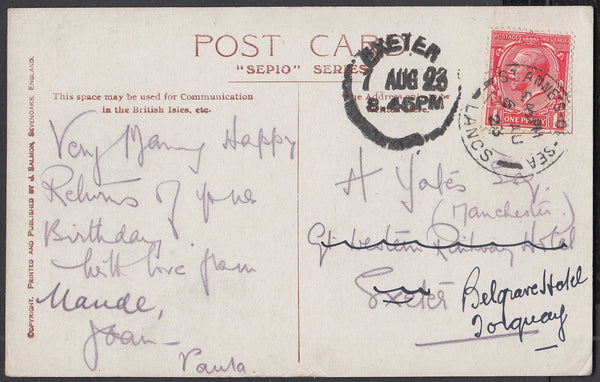 POST CARD.
"SEPIO" SERIES
This space may be used for Communication
in the British Isles, etc.
The Address only
EXETER
7 AUG 23
8.45PM
ST ANNES-ON-SEA
LANCS
6 AU
23
POSTAGE REVENUE
ONE PENNY
Very Many Happy
Returns of your
Birthday
with love from
Maude,
Joan
Paula
H Yates Esq.
(Manchester)
Gt Western Railway Hotel
Exeter
Belgrave Hotel
Torquay
COPYRIGHT. PRINTED AND PUBLISHED BY J. SALMON, SEVENOAKS, ENGLAND.